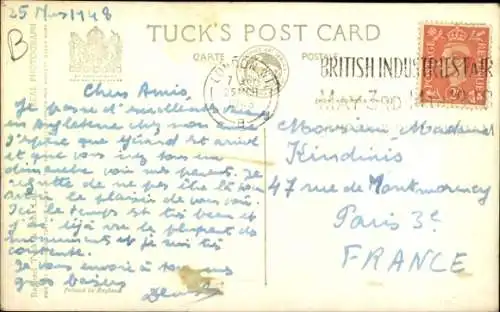 25 Mars 1948
B
TUCK'S POST CARD
CARTE POSTALE
LONDON
7
25 MCH
BRITISH INDUSTRIES FAIR
MAY 3RD
Chers Amis,
Je passe d'excellentes
en Angleterre chez mon
J'espère que Gérard est arrivé
et que vous irez tous un
dimanche voir mes parents. Je
regrette de ne pas être là
avoir le plaisir de vous voir.
Ici le temps est très beau et
j'ai déjà vu la plupart des
monuments et je suis très
contente.
Je vous envoie à tous mes
gros baisers
Monsieur Madame
Kindinis
47 rue de Montmorency
Paris 3e
FRANCE
Printed in England